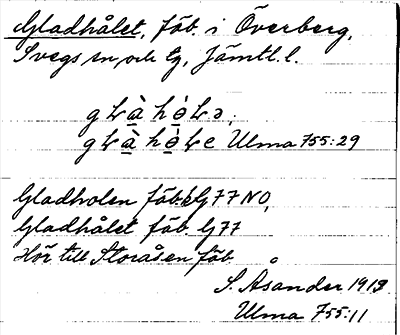 Gladhålet, fäb. i Överberg,
Svegs sn och tg, Jämtl. l.
Ulma 755:29
Gladholen fäb. G77 NO,
Gladhålet fäb. G77
Hör till Storåsen fäb.
S. Åsander 1913
Ulma 755:11